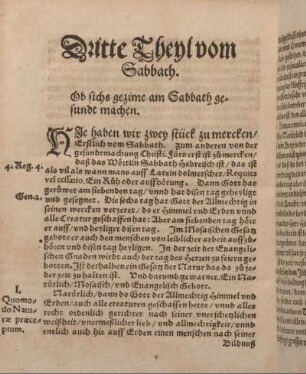 Dritte Theyl vom
Sabbath.
Ob sichs gezime am Sabbath ge-
sundt machen.
HIe haben wir zwey stück zu mercken/
Erstlich vom Sabbath. Zum anderen von der
gesundtmachung Christi. Fürs erst ist zů mercken/
daß das Wörtlin Sabbath Hebreisch ist/ das ist
4. Reg. 4.
als vil als wann mans auff Latein dolmetschet/ Requies
vel cessatio, Ein Růh oder auffhörung. Dann Gott hat
Gen. 2.
gerůwet am sibenden tag/ vnnd hat disen tag geheyliget
vnd gesegnet. Die sechs tag hat Gott der Allmechtig in
seinen wercken verzeret/ do er Himmel vnd Erden vnnd
alle Creatur geschaffen hat: Aber am sibenden tag hört
er auff/ vnd heyliget disen tag. Im Mosaischen Gesatz
gebotet er auch den menschen von leiblicher arbeit auff zů
hören vnd disen tag heyligen. In der zeit der Euangeli-
schen Gnaden wirdt auch der tag des Herren zu feiren ge-
botten. Ist derhalben ein Gesatz der Natur das da zů je-
der zeit zu halten ist. Vnd darumb gewarnet. Ein Na-
türlich/ Mosaisch/ vnd Euangelisch Gebott.
I.
Quomo-
do Natu-
ræ præce-
ptum.
Natürlich/ dann do Gott der Allmechtig Himmel vnd
Erden/ auch alle creaturen geschaffen hette/ vnnd alles
recht ordenlich gerichtet nach seiner vnerschetzlichen
weißheit/ vnermeßlicher lieb/ vnd allmechtigkeit/ vnnd
entlich auch hie auff Erden einen menschen nach seiner
Bildnuß